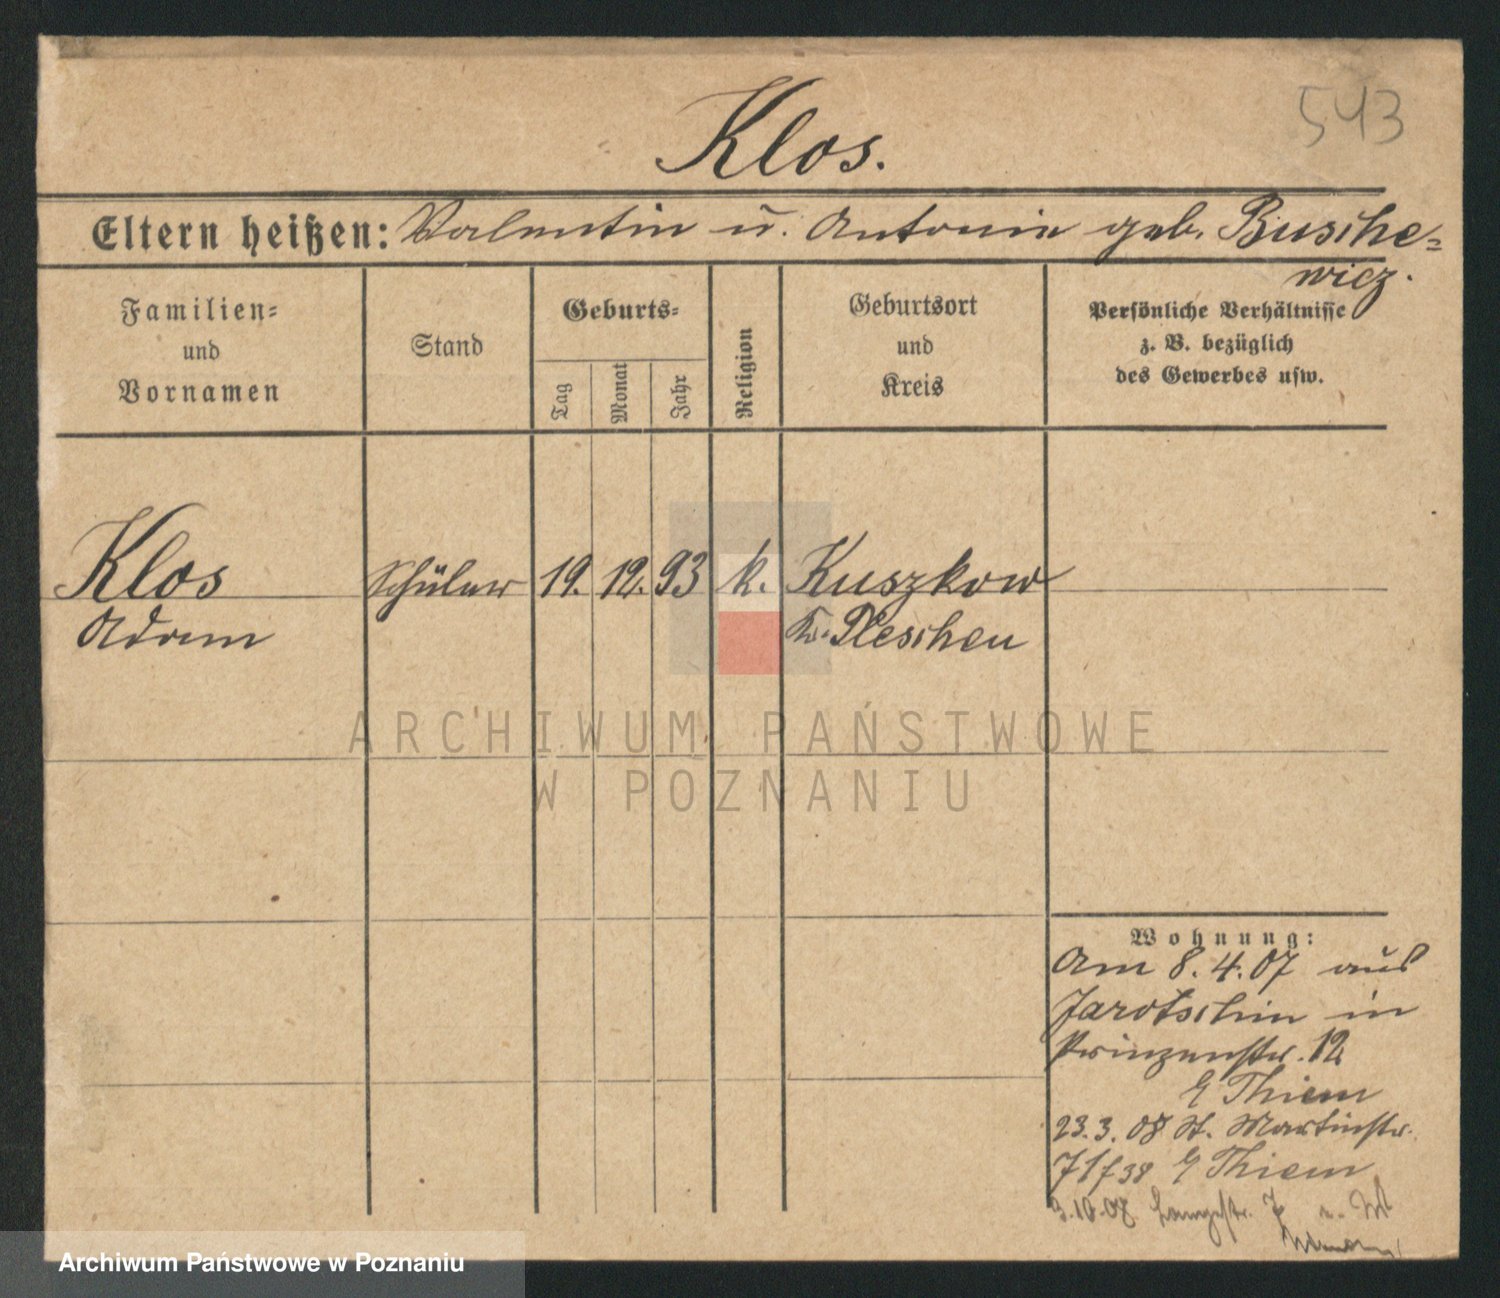 543
Klos.
Eltern heißen: Valentin u. Antonie geb. Busche=
wicz.
Familien=
und
Vornamen
Stand
Geburts=
Tag
Monat
Jahr
Religion
Geburtsort
und
Kreis
Persönliche Verhältnisse
z. B. bezüglich
des Gewerbes usw.
Klos Schüler 19. 12. 93 k. Kuszkow
Adam Kr. Pleschen
ARCHIWUM PAŃSTWOWE
W POZNANIU
Wohnung:
Am 8. 4. 07 aus
Jarotschin in
Prinzenstr. 12
Thiem
23. 3. 08 St. Martinstr.
Thiem
3.10.08. Langestr. 7
Archiwum Państwowe w Poznaniu